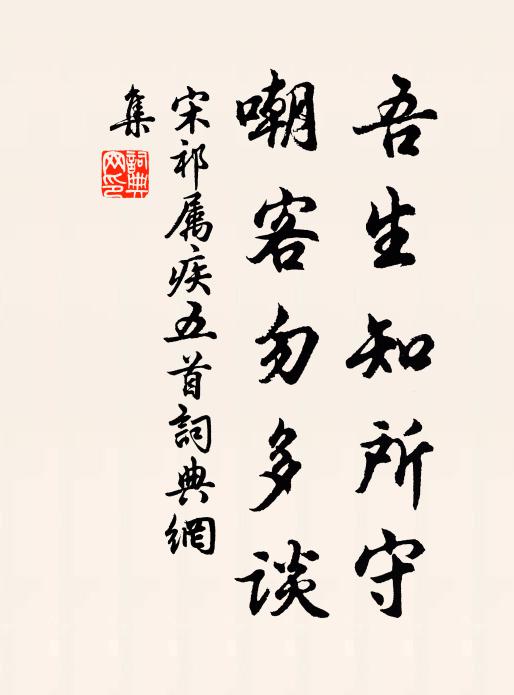 吾生知所守
嘲客勿多谈
宋祁属疾五首詞典網
集
詞典网印